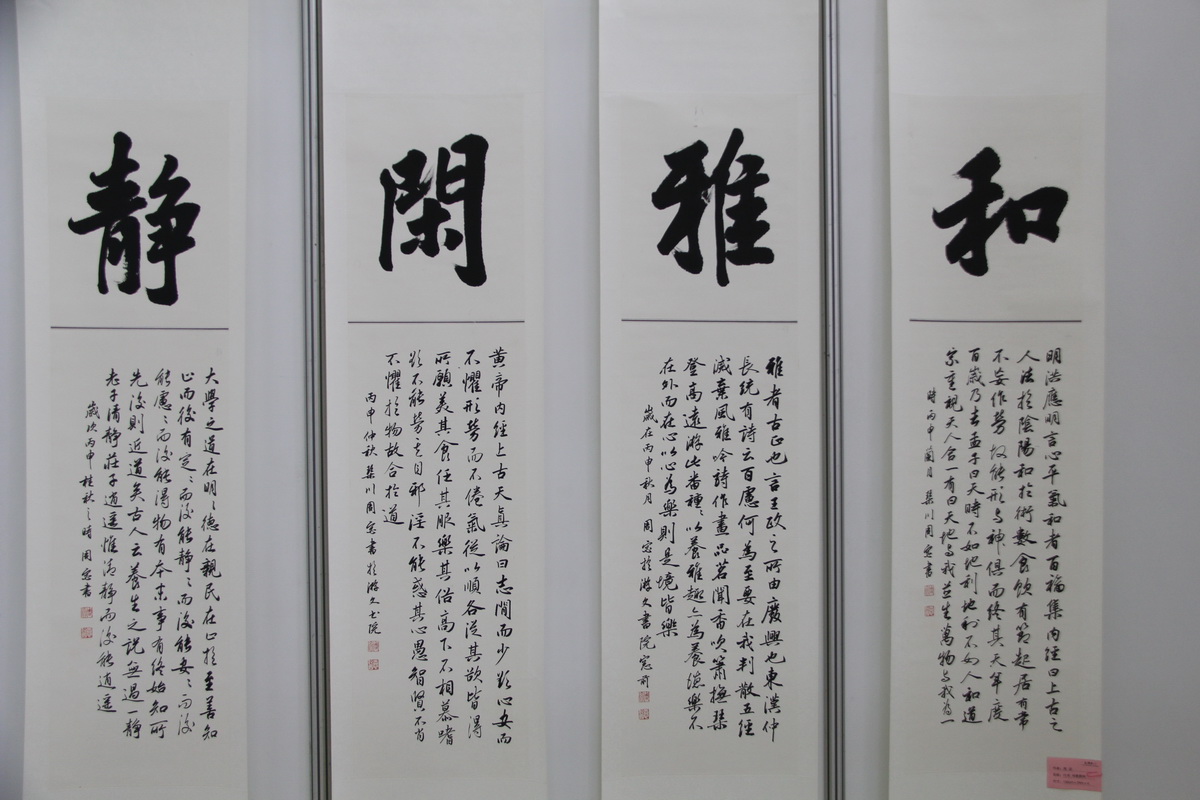 和
明洪應明言心平氣和者百福集内經曰上古之
人法於陰陽和於術數食飲有節起居有常
不妄作勞故能形與神俱而終其天年度
百歲乃去孟子曰天時不如地利地利不如人和道
家重視天人合一有曰天地與我並生萬物與我為一
時丙申蘭月 桒川周宓書
雅
雅者古正也言王政之所由廢興也東漢仲
長統有詩云百慮何為至要在我判散五經
滅棄風雅吟詩作畫品茗聞香吹簫撫琹
登高遠游此番種〻以養雅趣亦為養德樂不
在外而在心以心為樂則是境皆樂
歲在丙申秋月 周宓於游文書院窓前
閑
黄帝内經上古天真論曰志閒而少欲心安而
不懼形勞而不倦氣從以順各從其欲皆得
所願美其食任其服樂其俗高下不相慕嗜
欲不能勞其目邪淫不能惑其心愚智賢不肖
不懼於物故合於道
丙申仲秋 桒川周宓書於游文書院
静
大學之道在明〻德在親民在止於至善知
止而後有定〻而後能静〻而後能安〻而後
能慮〻而後能得物有本末事有終始知所
先後則近道矣古人云養生之説無過一静
老子清静莊子逍遥惟清静而後能逍遥
歲次丙申桂秋之時周宓書